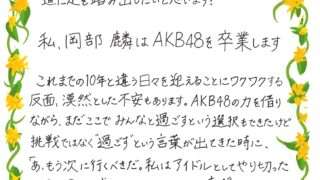 私、岡部 麟は AKB48を卒業します
これまでの10年と違う日々を迎えることにワクワクする
反面、漠然とした不安もあります。AKB48の力を借り
ながら、まだここで みんなと過ごすという選択もできたけど
挑戦ではなく"過ごす"という言葉が出てきた時に、
「あ、もう次に行くべきだ。私はアイドルとしてやり切った